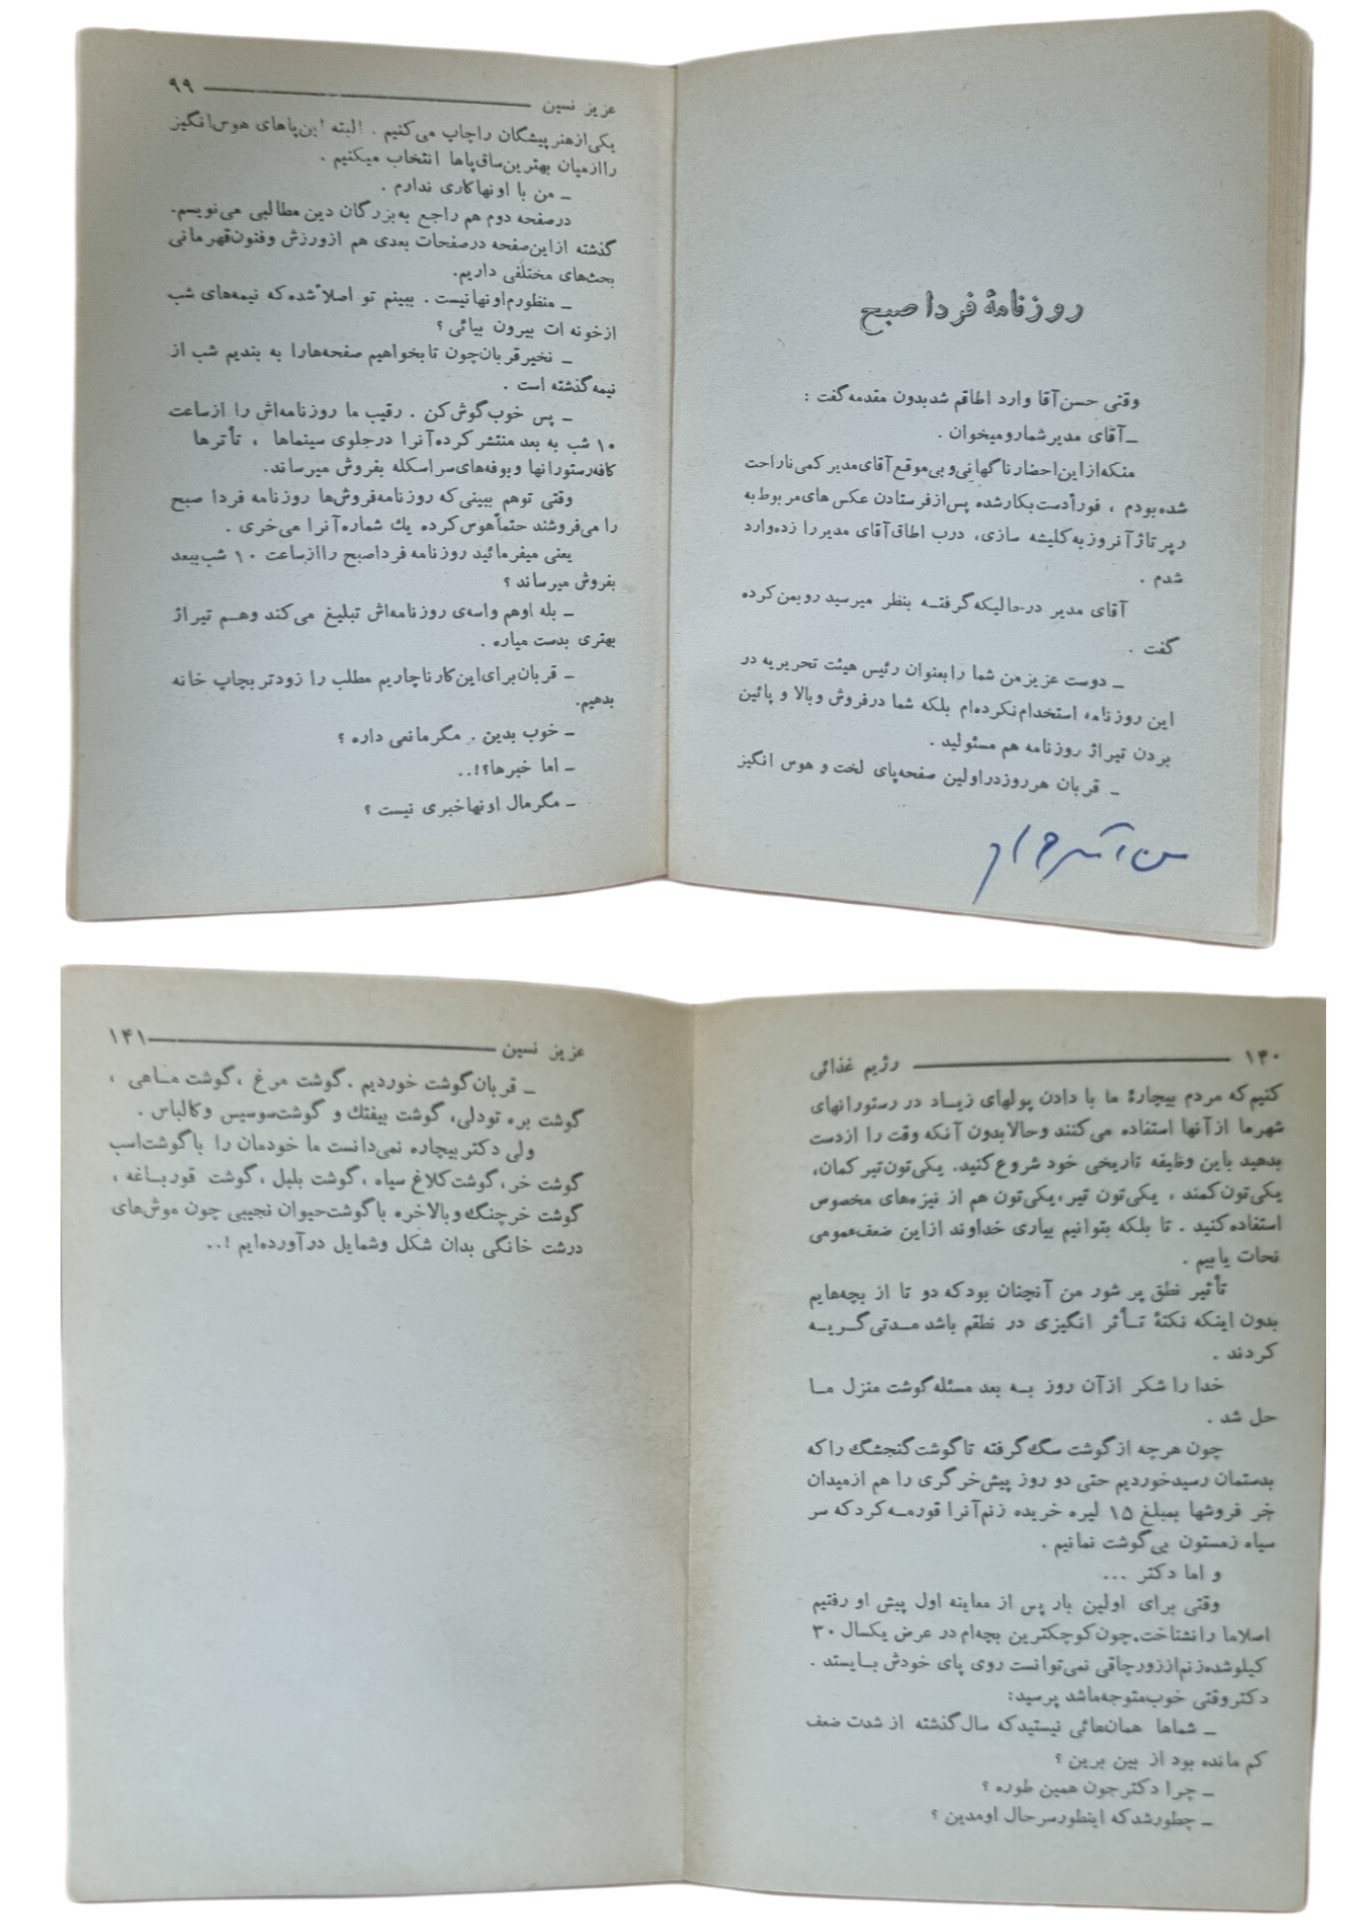 روزنامهٔ فردا صبح
وقتی حسن‌آقا وارد اطاقم شد بدون مقدمه گفت :
ـ آقای مدیر شمارو میخوان .
منکه از این احضار ناگهانی و بی موقع آقای مدیر کمی ناراحت
شده بودم ، فوراً دست بکار شده پس از فرستادن عکس های مربوط به
رپرتاژ آنروز به کلیشه سازی، درب اطاق آقای مدیر را زده وارد
شدم .
آقای مدیر در حالیکه گرفتــه بنظر میرسید رو بمن کرده
گفت .
ـ دوست عزیز من شما را بعنوان رئیس هیئت تحریریه در
این روزنامه استخدام نکرده‌ام بلکه شما در فروش و بالا و پائین
بردن تیراژ روزنامه هم مسئولید .
ـ قربان هر روز در اولین صفحه پای لخت و هوس انگیز
عزیز نسین ۹۹
یکی از هنرپیشگان را چاپ می‌کنیم . البته این پاهای هوس انگیز
را از میان بهترین ساق پاها انتخاب میکنیم .
ـ من با اونها کاری ندارم .
در صفحه دوم هم راجع به بزرگان دین مطالبی می‌نویسم.
گذشته از این صفحه در صفحات بعدی هم از ورزش و فنون قهرمانی
بحث‌های مختلفی داریم.
ـ منظورم اونها نیست . ببینم تو اصلا شده که نیمه‌های شب
از خونه ات بیرون بیائی ؟
ـ نخیر قربان چون تا بخواهیم صفحه‌ها را به بندیم شب از
نیمه گذشته است .
ـ پس خوب گوش کن . رقیب ما روزنامه‌اش را از ساعت
۱۰ شب به بعد منتشر کرده آنرا در جلوی سینماها ، تأترها
کافه رستورانها و بوفه‌های سر اسکله بفروش میرساند.
وقتی توهم ببینی که روزنامه فروش‌ها روزنامه فردا صبح
را می‌فروشند حتماً هوس کرده یك شماره آنرا می‌خری .
یعنی میفرمائید روزنامه فردا صبح را از ساعت ۱۰ شب ببعد
بفروش میرساند ؟
ـ بله اوهم واسه‌ی روزنامه‌اش تبلیغ می‌کند وهــم تیراژ
بهتری بدست میاره .
ـ قربان برای این کار ناچاریم مطلب را زودتر بچاپ خانه
بدهیم.
ـ خوب بدین . مگر مانعی داره ؟
ـ اما خبرها؟!..
ـ مگر مال اونها خبری نیست ؟
۱۴۰ رژیم غذائی
کنیم که مردم بیچارهٔ ما با دادن پولهای زیــاد در رستورانهای
شهر ما از آنها استفاده می‌کنند و حالا بدون آنکه وقت را از دست
بدهید باین وظیفه تاریخی خود شروع کنید. یکی‌تون تیر کمان،
یکی‌تون کمند ، یکی‌تون تیر، یکی‌تون هم از نیزه‌های مخصوص
استفاده کنید . تا بلکه بتوانیم بیاری خداوند از این ضعف عمومی
نجات یابیم .
تأثیر نطق پر شور من آنچنان بود که دو تا از بچه‌هایم
بدون اینکه نکتهٔ تــأثر انگیزی در نطقم باشد مــدتی گــریــه
کردند .
خدا را شکر از آن روز بــه بعد مسئله گوشت منزل مــا
حل شد .
چون هرچه از گوشت سگ گرفته تا گوشت گنجشگ را که
بدستمان رسید خوردیم حتی دو روز پیش خر گری را هم از میدان
خر فروشها بمبلغ ۱۵ لیره خریده زنم آنرا قورمــه کرد که سر
سیاه زمستون بی گوشت نمانیم .
و اما دکتر ...
وقتی برای اولین بار پس از معاینه اول پیش او رفتیم
اصلا ما را نشناخت. چون کوچکترین بچه‌ام در عرض یکسال ۳۰
کیلو شده زنم از زور چاقی نمی‌توانست روی پای خودش بــایستد .
دکتر وقتی خوب متوجه ما شد پرسید:
ـ شماها همان‌هائی نیستید که سال گذشته از شدت ضعف
کم مانده بود از بین برین ؟
ـ چرا دکتر جون همین طوره ؟
ـ چطور شد که اینطور سر حال اومدین ؟
عزیز نسین ۱۴۱
ـ قربان گوشت خوردیم . گوشت مرغ ، گوشت مــاهی ،
گوشت بره تودلی، گوشت بیفتك و گوشت سوسیس و کالباس .
ولی دکتر بیچاره نمی‌دانست ما خودمان را با گوشت اسب
گوشت خر، گوشت کلاغ سیاه ، گوشت بلبل ، گوشت قوربــاغه ،
گوشت خرچنگ و بالاخره با گوشت حیوان نجیبی چون موش‌های
درشت خانگی بدان شکل و شمایل در آورده‌ایم !..